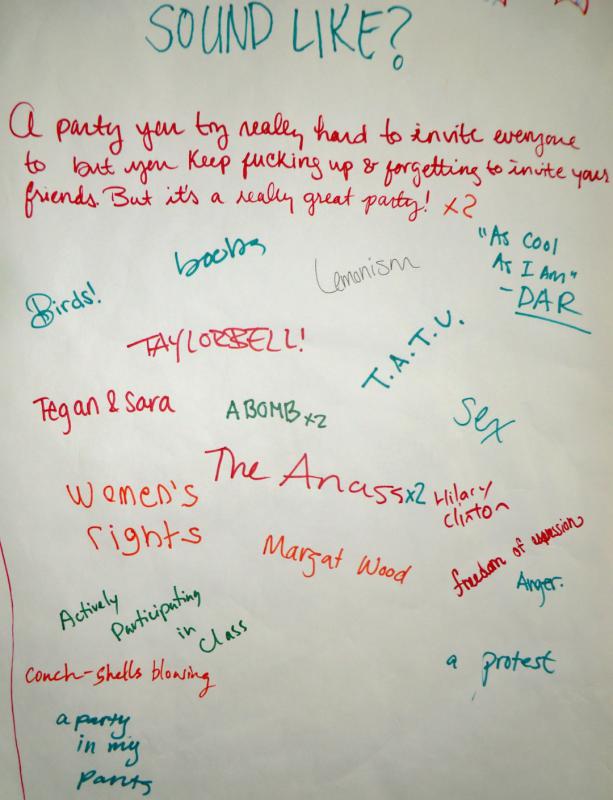 SOUND LIKE?
A party you try really hard to invite everyone
to but you keep fucking up & forgetting to invite your
friends. But it's a really great party! x2
"As Cool
As I Am"
- DAR
boobs
Lemonism
Birds!
TAYLORBELL!
T.A.T.U.
Tegan & Sara
A BOMB x2
Sex
The Anass x2
Women's
rights
Hilary
Clinton
Margat Wood
freedom of expression
Anger.
Actively
Participating
in Class
a protest
conch-shells blowing
a party
in my
pants